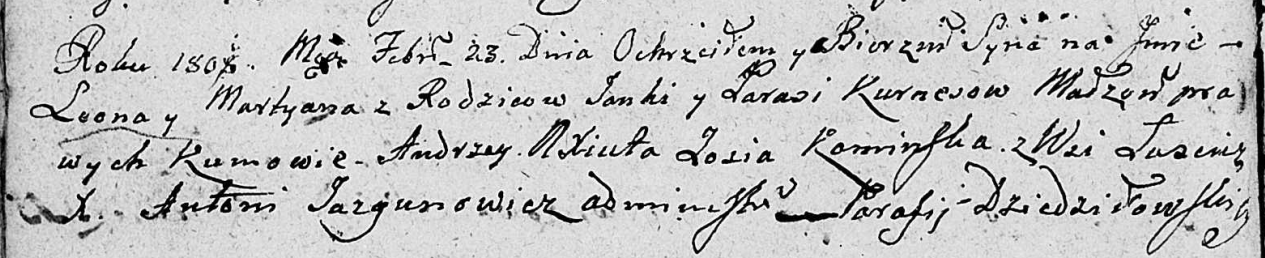 Roku 1808. Mca Febr. 23. Dnia Ochrzciłem y Bierzm. Syna na Jmie –
Leona y Martyana z Rodzicow Janki y Parasi Kurnesow Małżon pra
wych Kumowie – Andrzey Axiuta Zosia Kaminska z Wsi
X. Antoni Jazgunowicz administr Parafij Dziedziłowskiy